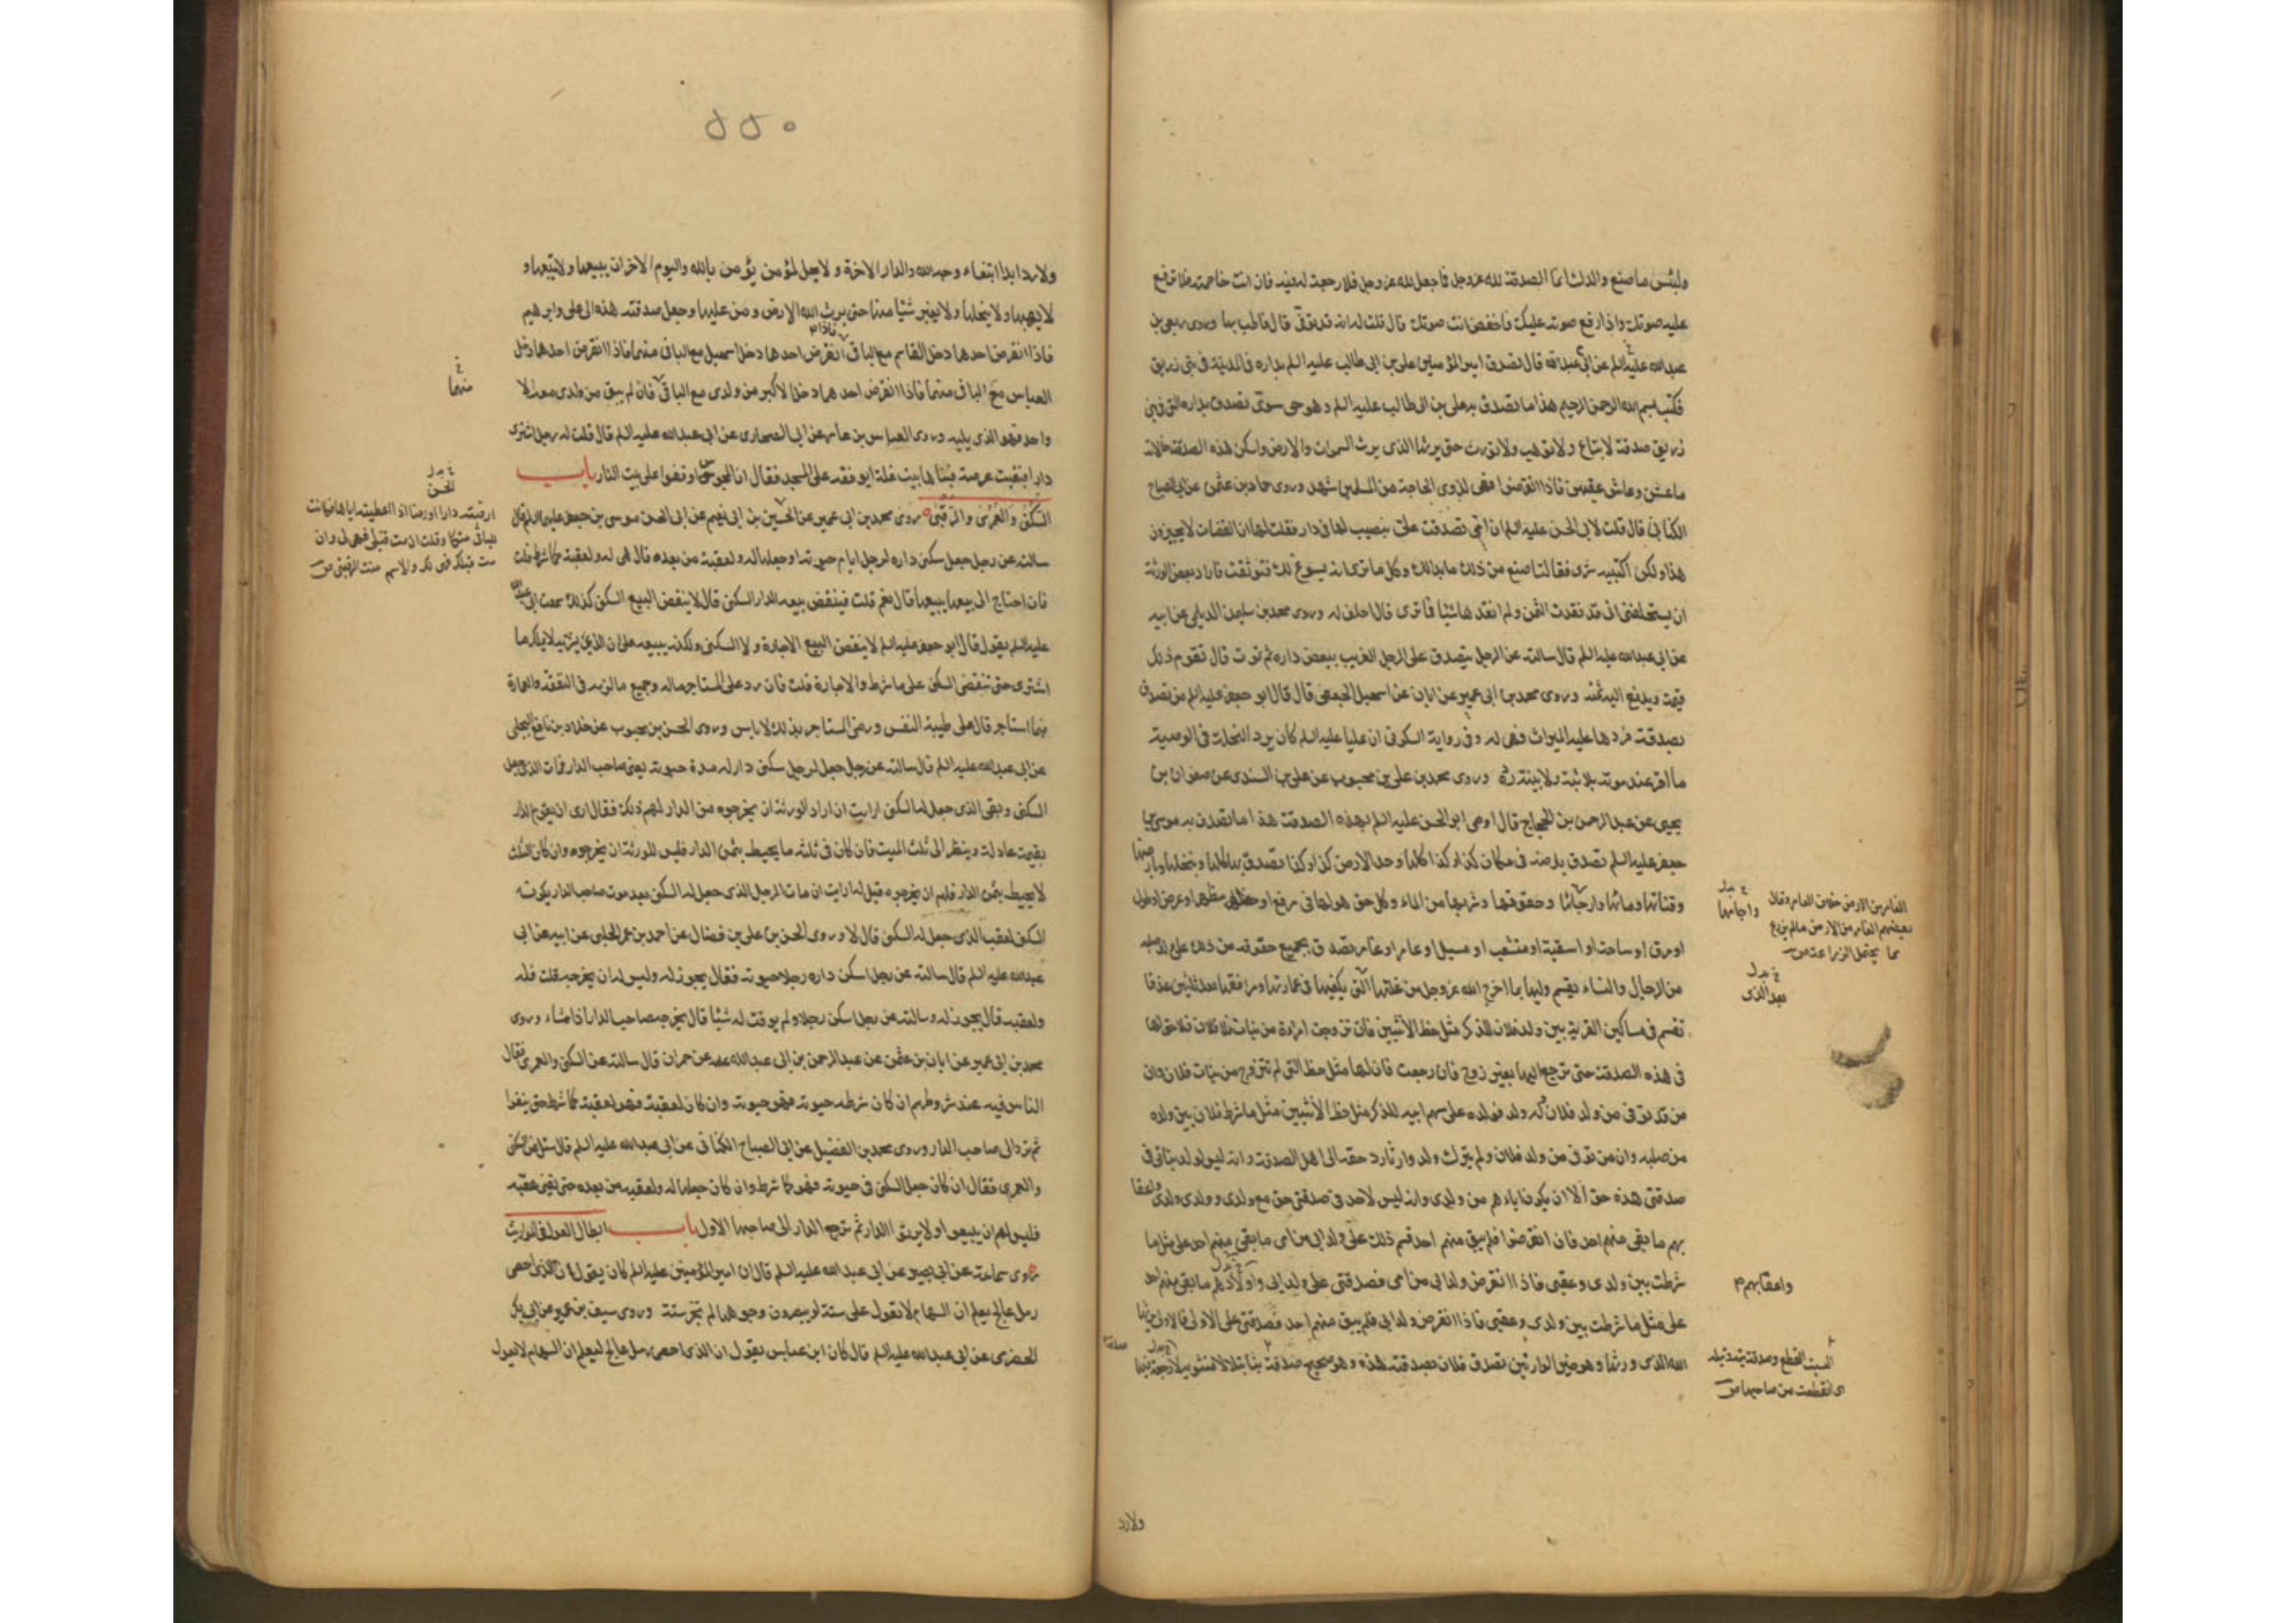 ولبئس ما صنع والدك انما الصدقة لله عز وجل فما جعل لله عز وجل فلا رجعة له فيه فان انت خاصمته فلا ترفع
عليه صوتك واذا رفع صوته عليك فاخفض انت صوتك قال قلت له انه قد توفى قال فاطب بها وروى ربعى بن
عبدالله عن ابى عبدالله عليه السلم قال تصدق امير المؤمنين على بن ابى طالب عليه السلم بداره فى المدينة فى بنى زريق
فكتب بسم الله الرحمن الرحيم هذا ما تصدق به على بن ابى طالب عليه السلم وهو حى سوى تصدق بداره التى فى بنى
زريق صدقة لا تباع ولا توهب ولا تورث حتى يرثها الذى يرث السموات والارض واسكن هذه الصدقة خالاته
ما عشن وعاش عقبهن فاذا انقرضوا فهى لذوى الحاجة من المسلمين شهد وروى حماد بن عثمن عن ابى الصباح
الكنانى قال قلت لابى الحسن عليه السلم ان امى تصدقت على بنصيب لها فى دار فقلت لها ان القضات لا يجيزون
هذا ولكن اكتبيه شرى فقالت اصنع من ذلك ما بدا لك وكل ما ترى انه يسوغ لك فتوثقت فاراد بعض الورثة
ان يستحلفنى انى قد نقدت الثمن ولم انقدها شيئا فما ترى قال احلف له وروى محمد بن سليمن الديلمى عن ابيه
عن ابى عبدالله عليه السلم قال سالته عن الرجل يتصدق على الرجل الغريب ببعض داره ثم يموت قال تقوم ذلك
قيمة ويدفع اليه ثمنه وروى محمد بن ابى عمير عن ابان عن اسمعيل الجعفى قال قال ابو جعفر عليه السلم من تصدق
بصدقة فردها عليه الميراث فهى له وفى رواية السكونى ان عليا عليه السلم كان يرد النحلة فى الوصية
ما اقر عند موته بلا ثبت ولا بينة رده وروى محمد بن على بن محبوب عن على بن السندى عن صفوان بن
يحيى عن عبد الرحمن بن الحجاج قال اوصى ابو الحسن عليه السلم بهذه الصدقة هذا ما تصدق به موسى بن
جعفر عليه السلم تصدق بارضه فى مكان كذا وكذا كلها وحد الارض كذا وكذا تصدق بها كلها ونخلها وارضها
وقناتها ومائها وارجائها وحقوقها وشربها من الماء وكل حق هو لها فى مرفع او مظهر او عرض او طول
او مرفق او ساحة او اسقية او متشعب او مسيل او عامر او غامر تصدق بجميع حقوقه من ذلك على ولد صلبه
من الرجال والنساء يقسم وليها ما اخرج الله عز وجل من غلتها التى يكفيها فى عمارتها ومرافقها بعد ثلثين عذقا
تقسم فى مساكين القرية بين ولد فلان للذكر مثل حظ الأنثيين فان تزوجت امراة من بنات فلان فلا حق لها
فى هذه الصدقة حتى ترجع اليها بغير زوج فان رجعت فان لها مثل حظ التى لم تتزوج من بنات فلان وان
من توفى من ولد فلان وله ولد فولده على سهم ابيه للذكر مثل حظ الأنثيين مثل ما شرط فلان بين ولده
من صلبه وان من توفى من ولد فلان ولم يترك ولد وارثا رد حقه الى اهل الصدقة وانه ليس لولد بناتى فى
صدقتى هذه حق الا ان يكون اباءهم من ولدى وانه ليس لاحد فى صدقتى حق مع ولدى وولد ولدى واعقا
بهم ما بقى منهم احد فان انقرضوا فلم يبق منهم احد قسم ذلك على ولد ابى من امى ما بقى منهم احد على مثل ما
شرطت بين ولدى وعقبى فاذا انقرض ولد ابى من امى فصدقتى على ولد ابى واولادهم ما بقى منهم احد
على مثل ما شرطت بين ولدى وعقبى فاذا انقرض ولد ابى فلم يبق منهم احد فصدقتى على الاولى فالاولى حتى يرثها
الله الذى ورثها وهو خير الوارثين تصدق فلان بصدقته هذه وهو صحيح صدقة بتا بتلا لا مثنوية لا رجعة فيها
الغامر من الارض خلاف العامر وقال
بعضهم الغامر من الارض ما لم يزرع
مما يحتمل الزراعة ص
خ بدل
واجانها
خ بدل
بعد الذى
واعقابهم م
البت القطع وصدقة بتة بتلة
اى انقطعت من صاحبها ص
ولا رد
٥٥٠
ولا رد ابدا ابتغاء وجه الله والدار الاخرة ولا يحل لمؤمن يؤمن بالله واليوم الاخر ان يبيعها ولا يبتعها و
لا يهبها ولا ينحلها ولا يغير شيئا منها حتى يرث الله الارض ومن عليها وجعل صدقته هذه الى على وابرهيم
فاذا انقرض احدهما دخل القاسم مع الباقى فاذا انقرض احدهما دخل اسمعيل مع الباقى منهما فاذا انقرض احدهما دخل
العباس مع الباقى منهما فاذا انقرض احدهما دخل الاكبر من ولدى مع الباقى فان لم يبق من ولدى معه الا
واحد فهو الذى يليه وروى العباس بن عامر عن ابى الصحارى عن ابى عبدالله عليه السلم قال قلت له رجل اشترى
دارا فبقيت عرصة فبناها بيت غلة ايوقفه على المسجد فقال ان المجوس اوقفوا على بيت النار باب
السكنى والعمرى والرقبى روى محمد بن ابى عمير عن الحسين بن ابى نعيم عن ابى الحسن موسى بن جعفر عليه السلم قال
سالته عن رجل جعل سكنى داره لرجل ايام حيوته او جعلها له ولعقبه من بعده قال هى له ولعقبه كما شرط قلت
فان احتاج الى بيعها يبيعها قال نعم قلت فينقض بيعه الدار السكنى قال لا ينقض البيع السكنى كذلك سمعت ابى
عليه السلم يقول قال ابو جعفر عليه السلم لا ينقض البيع الاجارة ولا السكنى ولكنه يبيعه على ان الذى يشتريه لا يملك ما
اشترى حتى تنقضى السكنى على ما شرط والاجارة قلت فان رد على المستاجر ماله وجميع ما لزمه فى النفقة والعمارة
فيما استاجر قال على طيبة النفس ورضى المستاجر بذلك لا باس وروى الحسن بن محبوب عن خلاد بن نافع البجلى
عن ابى عبدالله عليه السلم قال سالته عن رجل جعل لرجل سكنى دار له مدة حيوته يعنى صاحب الدار فمات الذى جعل
السكنى وبقى الذى جعل له السكنى ارايت ان اراد الورثة ان يخرجوه من الدار لهم ذلك فقال ارى ان يقوم الدار
بقيمة عادلة وينظر الى ثلث الميت فان كان فى ثلثه ما يحيط بثمن الدار فليس للورثة ان يخرجوه وان كان الثلث
لا يحيط بثمن الدار فلهم ان يخرجوه قيل له ارايت ان مات الرجل الذى جعل له السكنى بعد موت صاحب الدار يكون
السكنى لعقب الذى جعل له السكنى قال لا وروى الحسن بن على بن فضال عن احمد بن عمر الحلبى عن ابيه عن ابى
عبدالله عليه السلم قال سالته عن رجل اسكن داره رجلا حيوته فقال يجوز له وليس له ان يخرجه قلت فله
ولعقبه قال يجوز له وسالته عن رجل اسكن رجلا ولم يوقت له شيئا قال يخرجه صاحب الدار اذا شاء وروى
محمد بن ابى عمير عن ابان بن عثمن عن عبد الرحمن بن ابى عبدالله عن حمران قال سالته عن السكنى والعمرى فقال
الناس فيه عند شروطهم ان كان شرطه حيوته فهو حيوته وان كان لعقبه فهو لعقبه كما شرط حتى يفنوا
ثم ترد الى صاحب الدار وروى محمد بن الفضيل عن ابى الصباح الكنانى عن ابى عبدالله عليه السلم قال سئل عن السكنى
والعمرى فقال ان كان جعل السكنى فى حيوته فهو كما شرط وان كان جعلها له ولعقبه من بعده حتى يفنى عقبه
فليس لهم ان يبيعوا ولا يورثوا الدار ثم ترجع الدار الى صاحبها الاول باب ابطال العول فى المواريث
روى سماعة عن ابى بصير عن ابى عبدالله عليه السلم قال ان امير المؤمنين عليه السلم كان يقول ان الذى احصى
رمل عالج يعلم ان السهام لا تعول على ستة لو يبصرون وجوهها لم تجز ستة وروى سيف بن عميرة عن ابى بكر
الحضرمى عن ابى عبدالله عليه السلم قال كان ابن عباس يقول ان الذى احصى رمل عالج ليعلم ان السهام لا تعول
خ
منهما
خ بدل
الحسن
ارقبته دارا او رضا اذا اعطيته اياها فكانت
للباقى منكما وقلت ان مت قبلى فهى لى وان
مت قبلك فهى لك والاسم منه الرقبى ص